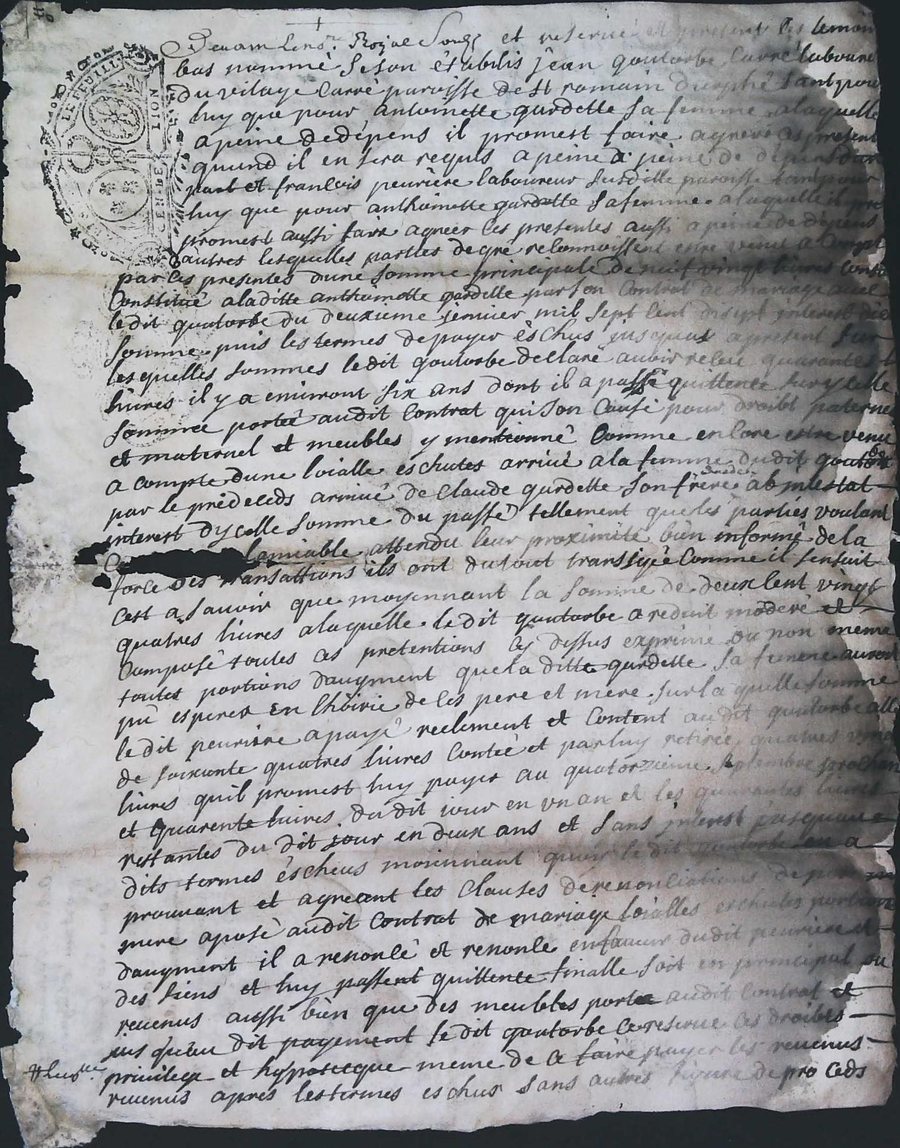 Devant le nore Royal Sousse et reservé et present les temoin
bas nommé se son étabilis jean goutorbe carré laboureu
du vilage carré paroisse de st romain durphé tant pour
luy que pour antoinette gardette sa femme a laquelle
a peine dedépens il promest faire agréér les present
quand il en sera requis a peine de dépens dun
part et francois peurière laboureur susditte paroisse tant pour
luy que pour anthoinette gardette sa femme a laquelle il
promest aussi faire agreer les presentes aussi a peine de dépens
dautres lesquelles parties de gré reconnoissent estre venu a compte
par les presentes dune somme principale de neuf vingt livres
Constitué a laditte anthoinette gardette par son Contrat de mariage avec
ledit goutorbe du deuxieme jenvier mil sept cent disept interest dicelle
somme puis les termes de payer êschus jusquau apresent sur
lesquelles sommes ledit goutorbe declare avoir reçeu quarantes
livres il y a environt six ans dont il a passé quittence sur ycelle
somme portée audit Contrat qui son Causé pour droibt paternel
et maternel et meubles y mentionné Comme encore estre venu
a compte dune loialle eschutes arrivé a la femme dudit goutorbe
par le prédecéds arrivé de Claude gardette son frère decedé ab intestat
interest dycelle somme du passé tellement que les parties voulant
lamiable attendu leur proximité bien informé de la
force des transattions ils ont du tout transigé Comme il sensuit
Cest a savoir que moyennant la somme de deux Cent vingt
quatres livres a laquelle ledit goutorbe a reduit modéré et
Composé toutes ces pretentions cy dessus exprimé ou non meme
toutes portions daugment que la ditte gardette sa femme auroit
pu esperer en lhoirie de ces pere et mère sur la quelle somme
ledit peuriere a payé reelement et Content audit goutorbe celle
de soixante quatres livres Contée et par luy retirée quatres vingt
livres quil promest luy payer au quatorzieme septembre prochain
et quarente livres dudit jour en vn an et les quarantes livres
restantes du dit jour en deux ans et sans interest pasquau
dits termes êscheus moiennant quoy le dit goutorbe en a
prouvant et agréént les Clauses de renonciations de pere
mere aposé audit Contrat de mariage loialles eschutes portions
daugment il a renoncé et renonce enfaveur dudit peuriere et
des siens et luy passent quittence finalle soit en principal ou
revenus aussi bien que des meubles porté audit Contrat et
jusquau dit payement ledit goutorbe ce reserve ces droibts
privilege et hypotecque meme de ce faire payer les revenus
revenus apres les termes eschus sans autres figure de proceds